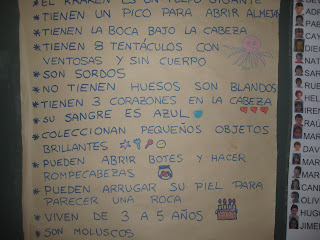 *EL KRAKEN ES UN PULPO GIGANTE
*TIENEN UN PICO PARA ABRIR ALMEJAS
*TIENEN LA BOCA BAJO LA CABEZA
*TIENEN 8 TENTÁCULOS CON
VENTOSAS Y SIN CUERPO
*SON SORDOS
*NO TIENEN HUESOS SON BLANDOS
*TIENEN 3 CORAZONES EN LA CABEZA
*SU SANGRE ES AZUL
*COLECCIONAN PEQUEÑOS OBJETOS
BRILLANTES
*PUEDEN ABRIR BOTES Y HACER
ROMPECABEZAS
*PUEDEN ARRUGAR SU PIEL PARA
PARECER UNA ROCA
*VIVEN DE 3 A 5 AÑOS
*SON MOLUSCOS